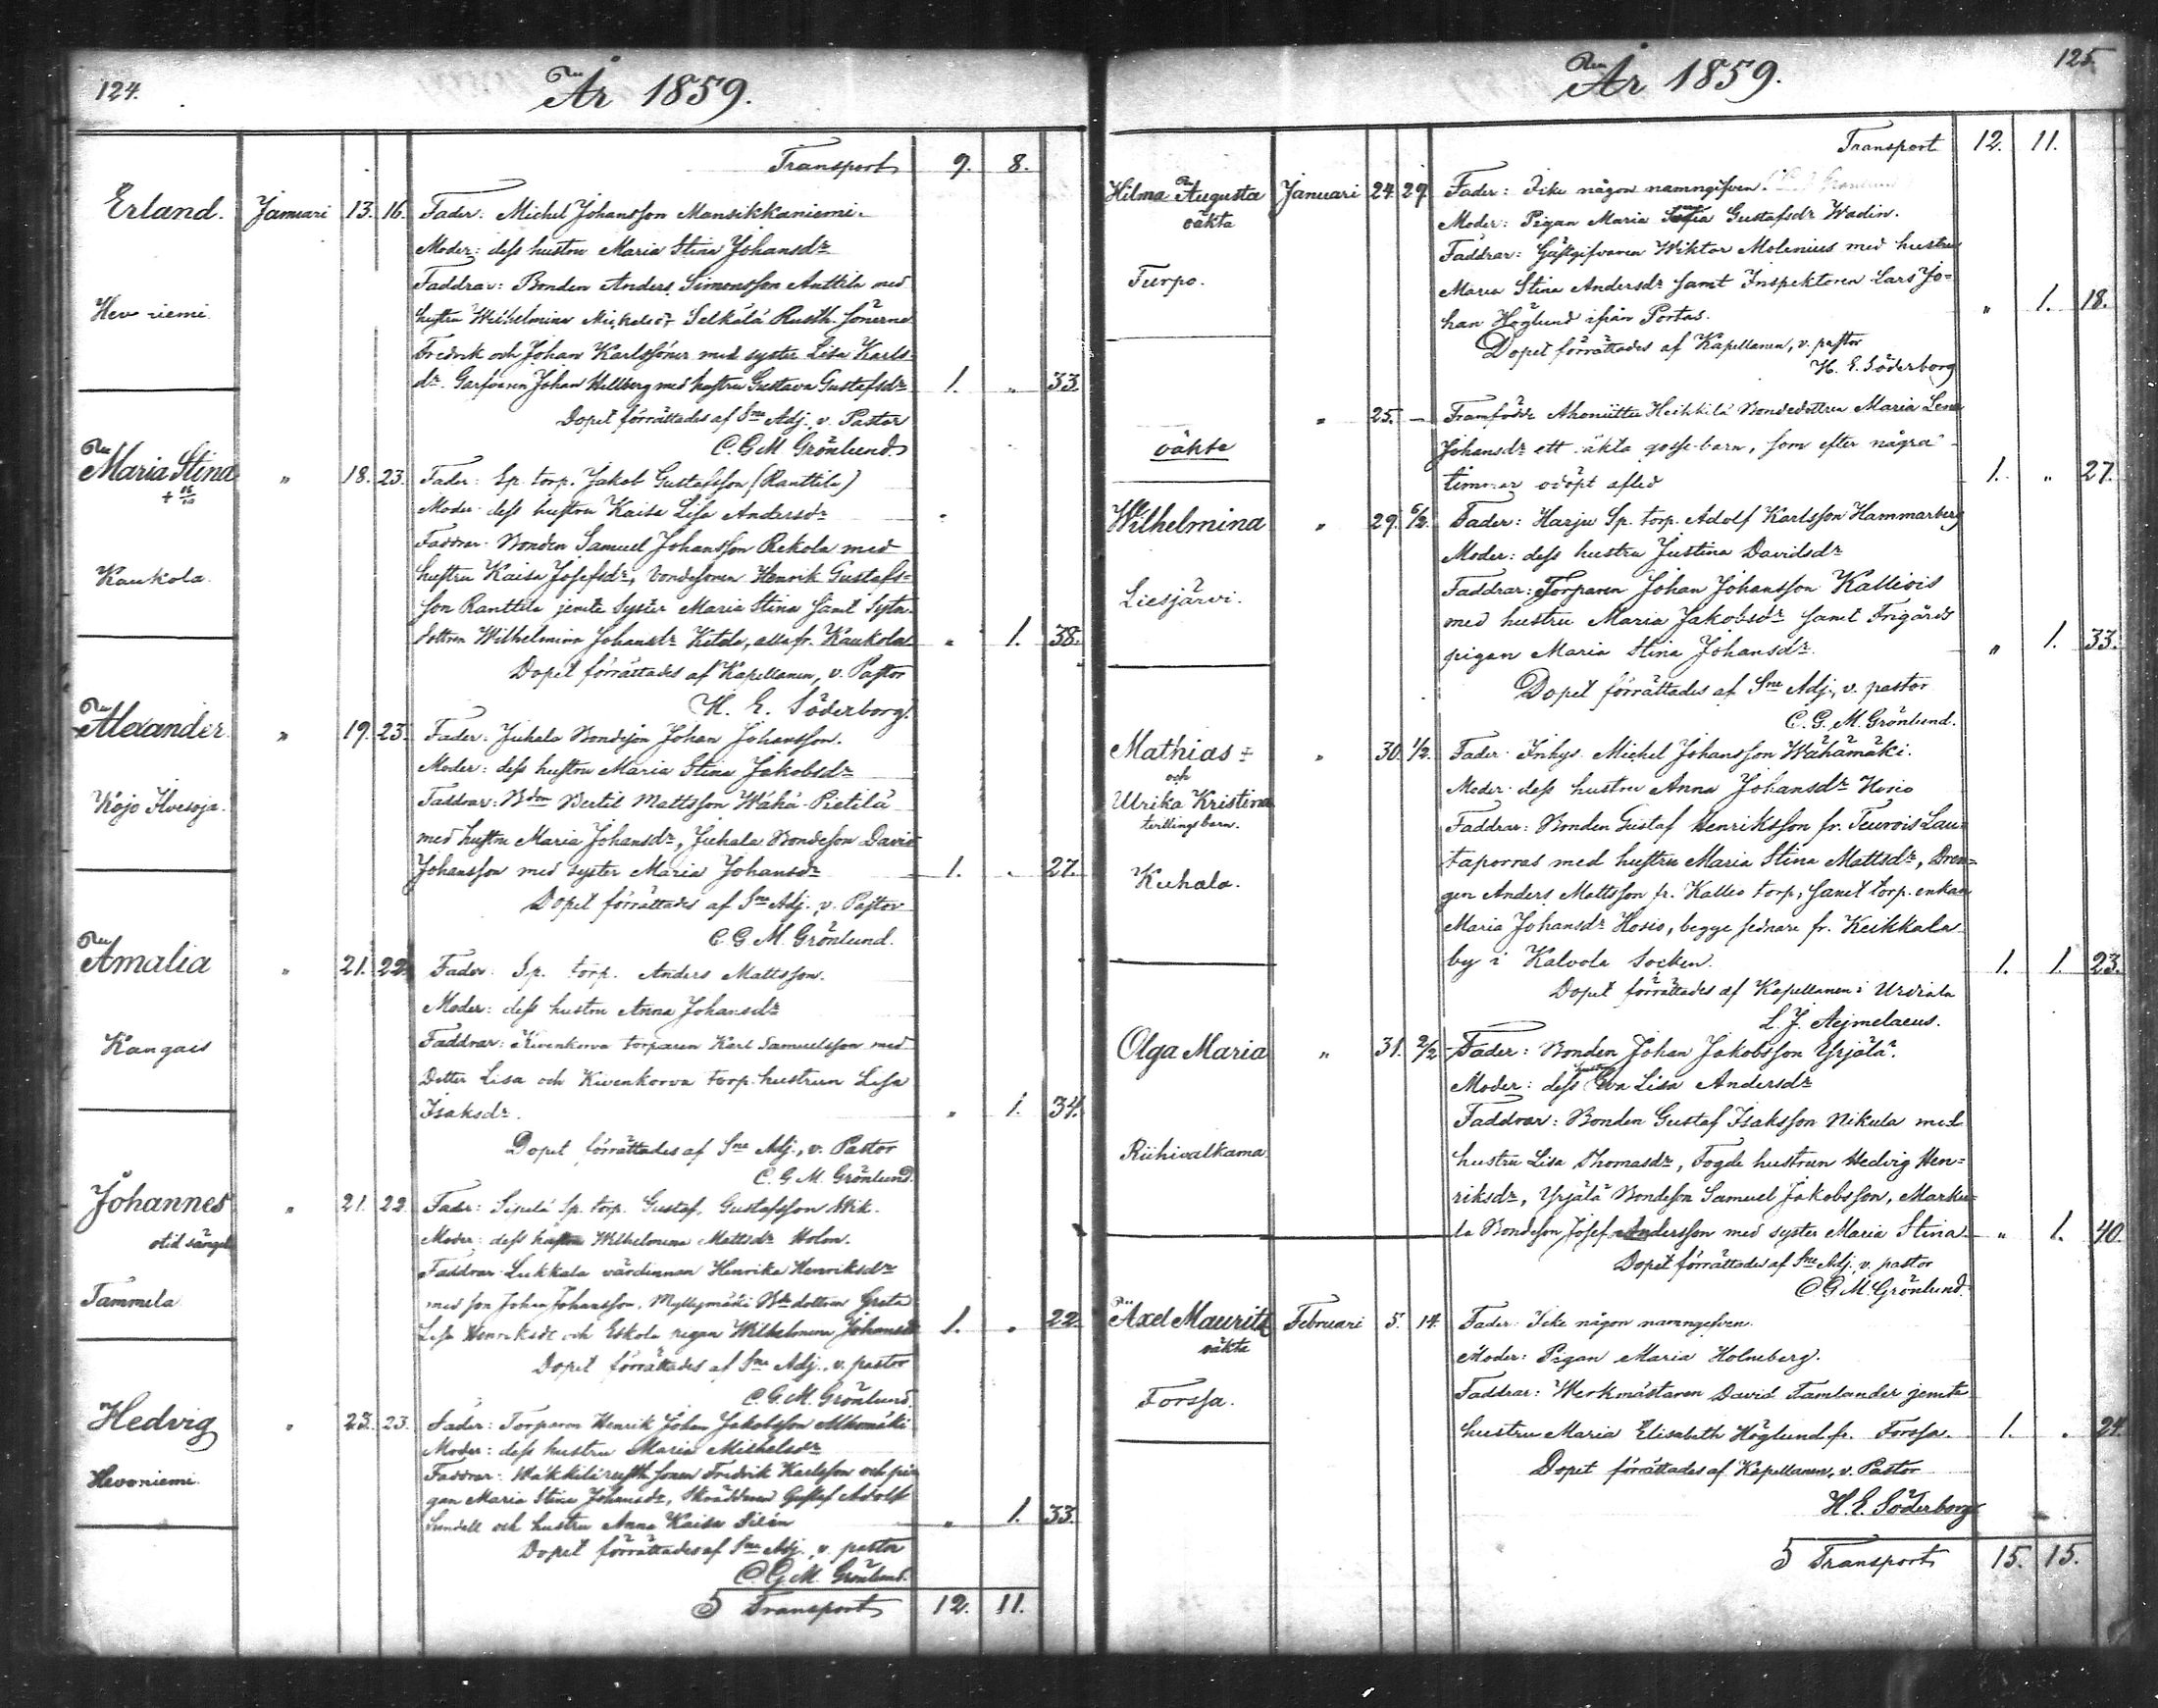 124.
År 1859.
Transport 9. 8.
Erland. Januari 13. 16. Fader: Michel Johansson Mansikkaniemi.
Moder: dess hustru Maria Stina Johansdr
Faddrar: Bonden Anders Simonsson Anttila med
Hevoniemi
hustru Wilhelmina Michelsdr Selkälä Rusth. sönerna
Fredrik och Johan Karlssöner med syster Lisa Karls-
dr. Garfvaren Johan Hellberg med hustru Gustava Gustafsdr 1. „ 33.
Dopet förrättades af Sne Adj. v. Pastor
C. G. M. Grönlund
Maria Stina „ 18. 23. Fader: Sp. torp. Jakob Gustafsson (Ranttila)
Moder: dess hustru Kaisa Lisa Andersdr
Faddrar: Bonden Samuel Johansson Rekola med
Kaukola.
hustru Kaisa Josefsdr, bondesonen Henrik Gustafs-
son Ranttila jemte Syster Maria Stina samt Syta-
dottren Wilhelmina Johansdr Kitola, alla fr. Kaukola „ 1. 38.
Dopet förrättades af Kapellanen, v. Pastor
H. E. Söderborg.
Alexander. „ 19. 23. Fader: Juhala Bondeson Johan Johansson.
Moder: dess hustru Maria Stina Jakobsdr
Kojo
Faddrar: Bdn Bertil Mattsson Wähä-Pietilä
med hustru Maria Johansdr, Juhala Bondeson David
Johansson med syster Maria Johansdr 1. „ 27.
Dopet förrättades af Sne Adj. v. Pastor
C. G. M. Grönlund.
Amalia „ 21. 22. Fader: Sp. torp. Anders Mattsson.
Moder: dess hustru Anna Johansdr
Kangais
Faddrar: Kivenkorva torparen Karl Samuelsson med
Dotter Lisa och Kivenkorva torp. hustrun Lisa
Isaksdr. „ 1. 34.
Dopet förrättades af Sne Adj., v. Pastor
C. G. M. Grönlund.
Johannes „ 21. 22. Fader: Sipilä Sp. torp. Gustaf Gustafsson Wik.
Moder: dess hustru Wilhelmina Mattsdr Holm.
Faddrar: Lukkala värdinnan Henrika Henriksdr
Tammela
med son Johan Johansson, Myllymäki Bde dottren Greta
Lisa Henriksdr och Eskola pigan Wilhelmina Johansdr 1. „ 22.
Dopet förrättades af Sne Adj., v. pastor
C. G. M. Grönlund.
Hedvig „ 23. 23. Fader: Torparen Henrik Johan Jakobsson Alhomäki
Moder: dess hustru Maria Michelsdr
Hevoniemi
Faddrar: rusth. sonen Fredrik Karlsson och pi-
gan Maria Stina Johansdr, Skräddaren Gustaf Adolf
Sundell och hustru Anna Kaisa Silén „ 1. 33.
Dopet förrättades af Sne Adj., v. pastor
C. G. M. Grönlund.
Transport 12. 11.
125.
År 1859.
Transport 12. 11.
Hilma Augusta Januari 24. 29. Fader: Icke någon namngifven.
oäkta
Moder: Pigan Maria Sofia Gustafsdr Wadin.
Faddrar: Gästgifvaren Wiktor Molenius med hustru
Turpo.
Maria Stina Andersdr samt Inspektoren Lars Jo-
han Höglund ifrån Portas. „ 1. 18.
Dopet förrättades af Kapellanen, v. pastor
H. E. Söderborg
„ 25. – Framfödde Ahoniittu Heikkilä Bondedottren Maria Lena
oäkta
Johansdr ett oäkta gosse-barn, som efter några
timmar odöpt afled 1. „ 27.
Wilhelmina „ 29. 6/2. Fader: Harju Sp. torp. Adolf Karlsson Hammarberg
Moder: dess hustru Justina Davidsdr
Liesjärvi.
Faddrar: Torparen Johan Johansson Kalliois
med hustru Maria Jakobsdr samt Frigårds
pigan Maria Stina Johansdr. „ 1. 33.
Dopet förrättades af Sne Adj., v. pastor
C. G. M. Grönlund.
Mathias „ 30. 1/2. Fader: Inhys. Michel Johansson Wähämäki.
och
Moder: dess hustru Anna Johansdr Hosio
Ulrika Kristina
tvillingsbarn.
Faddrar: Bonden Gustaf Henriksson fr. Teurois Lau-
taporras med hustru Maria Stina Mattsdr, Dren-
Kuhala.
gen Anders Mattsson fr. Kallio torp, samt torp. enkan
Maria Johansdr Hosio, begge sednare fr. Keikkala
by i Kalvola Socken. 1. 1. 23.
Dopet förrättades af Kapellanen i Urdiala
L. J. Aejmelaeus.
Olga Maria „ 31. 2/2 Fader: Bonden Johan Jakobsson Yrjälä.
Moder: dess hustru Eva Lisa Andersdr
Faddrar: Bonden Gustaf Isaksson Nikula med
Riihivalkama
hustru Lisa Thomasdr, Fogde hustrun Hedvig Hen-
riksdr, Yrjälä Bondeson Samuel Jakobsson, Marku-
la Bondeson Josef Andersson med syster Maria Stina. „ 1. 40.
Dopet förrättades af Sne Adj. v. pastor
C. G. M. Grönlund.
Axel Mauritz Februari 5. 14. Fader: Icke någon namngifven.
oäkta
Moder: Pigan Maria Holmberg.
Faddrar: Werkmästaren David Tamlander jemte
Forssa.
hustru Maria Elisabeth Höglund fr. Forssa. 1. „ 24.
Dopet förrättades af Kapellanen, v. Pastor
H. E. Söderborg
Transport 15. 15.